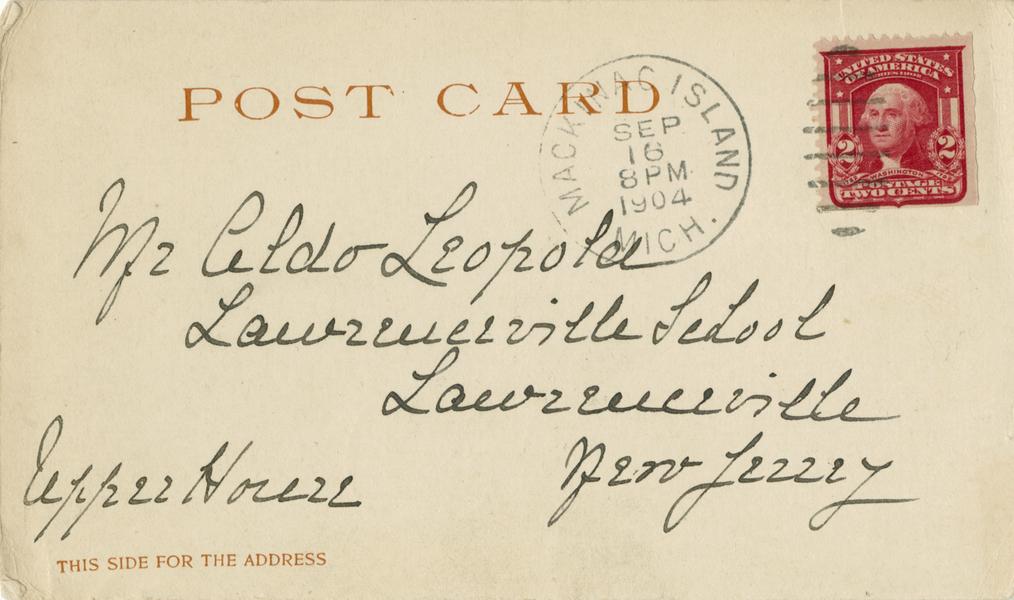 POST CARD
MACKINAC ISLAND
SEP
16
8 PM
1904
MICH.
UNITED STATES
OF AMERICA
SERIES 1902
2 2
WASHINGTON
POSTAGE
TWO CENTS
Mr Aldo Leopold
Lawrenceville School
Lawrenceville
New Jersey
Upper House
THIS SIDE FOR THE ADDRESS